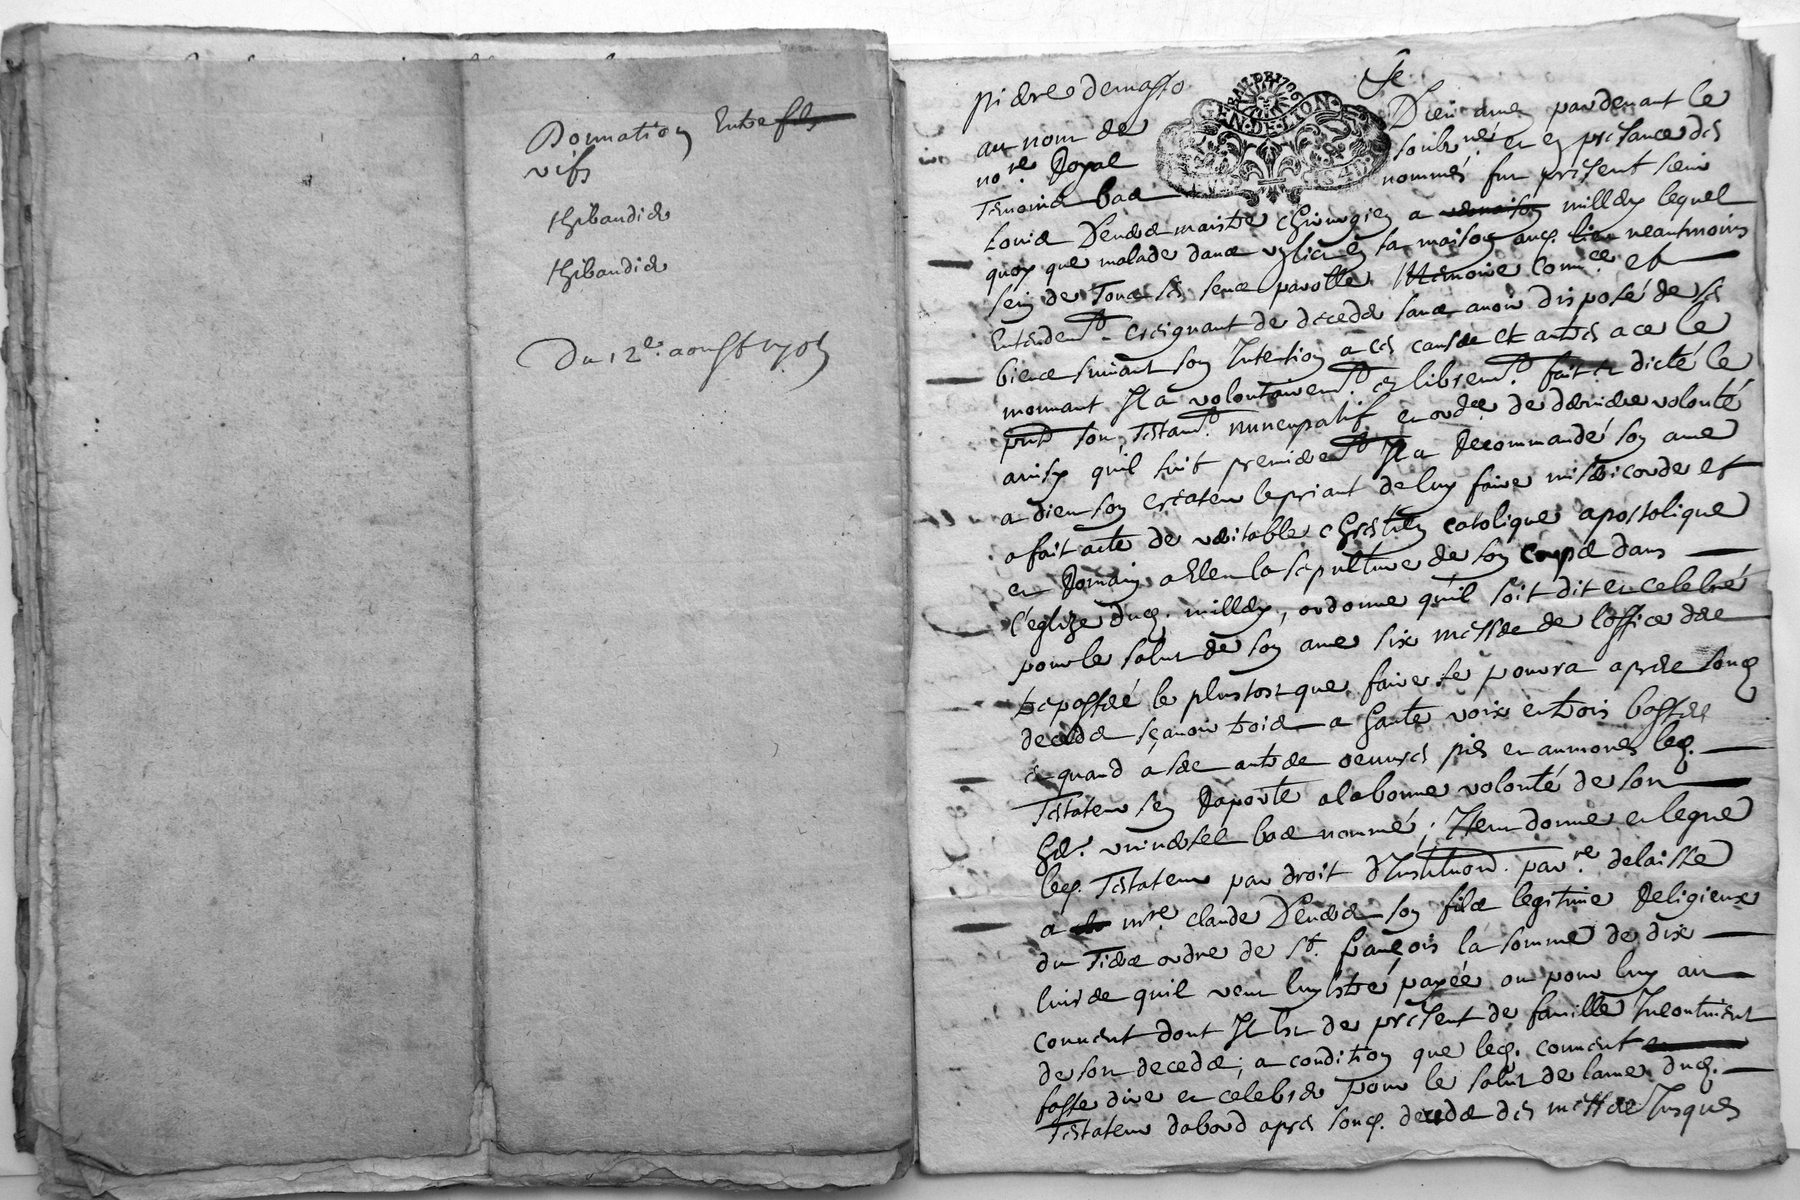 Donnation Entre
vifs
thibaudier
thibaudier
Du 12e. aoust 1705
pierre demasso
au nom de
nore Royal
GEN. DE. LION.
BAIL DE 1706
Dieu amen pardevant le
soubzné et en presance des
nommés fut present sieur
Temoins bas
Louis maistre chirurgien a millery lequel
quoy que malade dans un lict en sa maison audt. neantmoins
sein de tous ses sens parolle Memoire Connce et
Entendemt. craignant de decedder sans avoir disposé de ses
biens suivant son Intention a ces causes et autres a ce le
mouvant Il a volontairemt. et libremt. fait et dicté le
pnt son Testamt. nuncupatif et ordce de derniere volonté
ainsy quil suit premieremt Il a Recommandé son ame
a dieu son createur le priant de luy faire misericorde et
a fait acte de veritable chrestien catolique apostolique
et Romain a Eleu la sepulture de son Corps dans
l'eglize dudt. millery, ordonne qu'il soit dit et celebré
pour le salut de son ame six messes de l'office des
trepassés le plustost que faire se pourra apres sond
decedz sçavoir trois a haute voix et trois basses
et quand a ses autres oeuvres pies et aumones led.
Testateur sen Raporte a la bonne volonté de son
her. universel bas nommé; Item donne et legue
led. Testateur par droit d'Institution parre. delaisse
a mre. claude son fils legitime Religieux
du Tiers ordre de st. françois la somme de dix
livres quil veut luy estre payée ou pour luy au
couvent dont Il est de present de famille Incontinent
de son decedz; a condition que led. couvent
fasse dire et celebrer pour le salut de lame dud.
Testateur dabord apres sond. decedz des messes Jusques